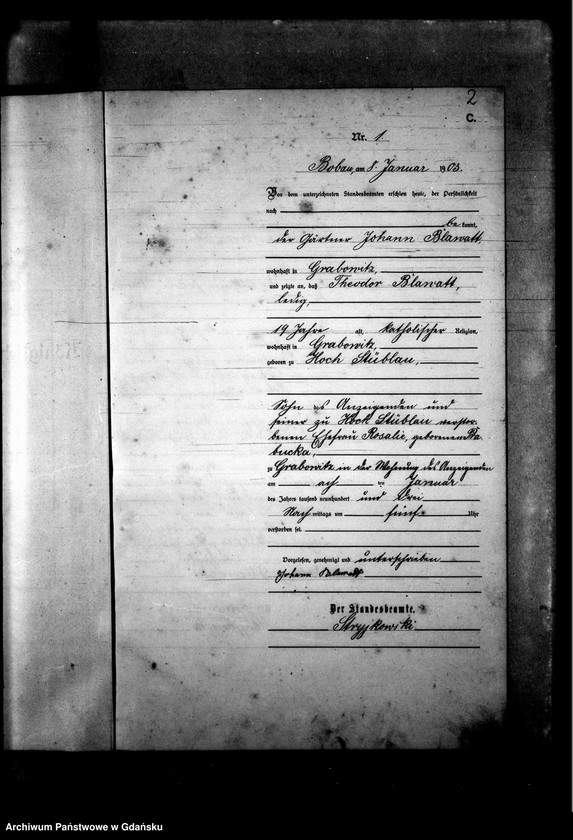 2
C.
Nr. 1
Bobau, am 8. Januar 1903.
Vor dem unterzeichneten Standesbeamten erschien heute, der Persönlichkeit
nach
be kannt,
der Gärtner Johann Blawatt,
wohnhaft in Grabowitz,
und zeigte an, daß Theodor Blawatt,
ledig,
19 Jahre alt, katholischer Religion,
wohnhaft in Grabowitz,
geboren zu Hoch Stüblau,
Sohn des Anzeigenden und
seiner zu Hoch Stüblau verstor-
benen Ehefrau Rosalie, geborenen
bucka,
zu Grabowitz in der Wohnung des Anzeigenden
am ach ten Januar
des Jahres tausend neunhundert und drei
Nach mittags um fünf Uhr
verstorben sei.
Vorgelesen, genehmigt und unterschrieben
Johann Blawatt
Der Standesbeamte.
Stryjkowski
Archiwum Państwowe w Gdańsku